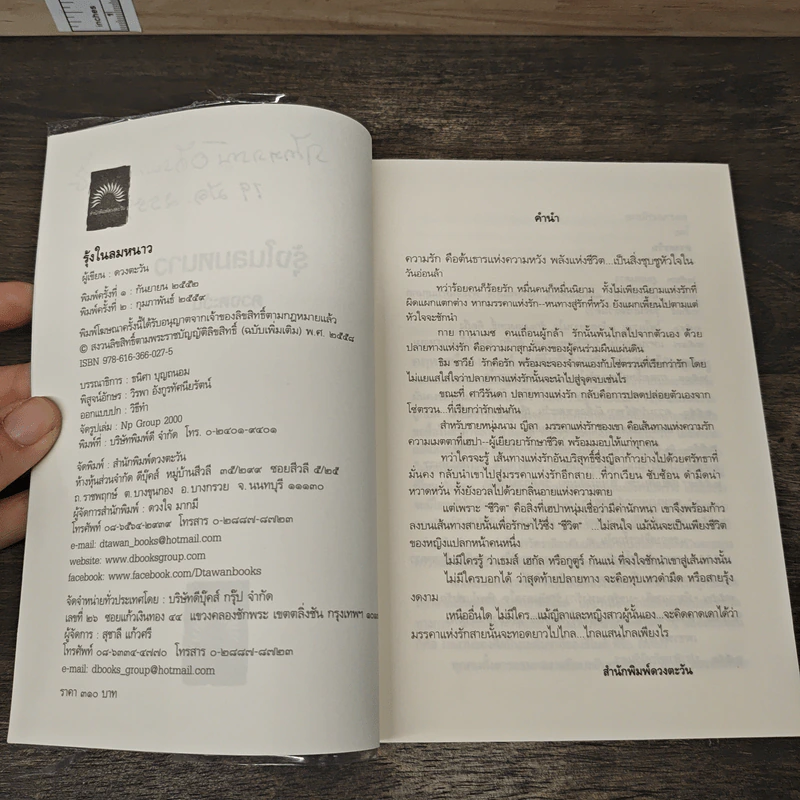 inches
สำนักพิมพ์ดวงตะวัน
รุ้งในลมหนาว
ผู้เขียน : ดวงตะวัน
พิมพ์ครั้งที่ ๑ : กันยายน ๒๕๕๒
พิมพ์ครั้งที่ ๒ : กุมภาพันธ์ ๒๕๕๙
พิมพ์โฆษณาครั้งนี้ได้รับอนุญาตจากเจ้าของลิขสิทธิ์ตามกฎหมายแล้ว
© สงวนลิขสิทธิ์ตามพระราชบัญญัติลิขสิทธิ์ (ฉบับเพิ่มเติม) พ.ศ. ๒๕๕๘
ISBN 978-616-366-027-5
บรรณาธิการ : ธนิศา บุญถนอม
พิสูจน์อักษร : วิรพา อังกูรทัศนียรัตน์
ออกแบบปก : วิธีทำ
จัดรูปเล่ม : Np Group 2000
พิมพ์ที่ : บริษัทพิมพ์ดี จำกัด โทร. ๐-๒๔๐๑-๙๔๐๑
จัดพิมพ์ : สำนักพิมพ์ดวงตะวัน
ห้างหุ้นส่วนจำกัด ดีบุ๊คส์ หมู่บ้านสีวลี ๓๕/๒๙๙ ซอยสีวลี ๕/๒๕
ถ.ราชพฤกษ์ ต.บางขุนกอง อ.บางกรวย จ.นนทบุรี ๑๑๑๓๐
ผู้จัดการสำนักพิมพ์ : ดวงใจ มากมี
โทรศัพท์ ๐๘-๖๕๖๔-๒๙๓๙ โทรสาร ๐-๒๘๘๗-๘๗๒๓
e-mail: dtawan_books@hotmail.com
website: www.dbooksgroup.com
facebook: www.facebook.com/Dtawanbooks
จัดจำหน่ายทั่วประเทศโดย : บริษัทดีบุ๊คส์ กรุ๊ป จำกัด
เลขที่ ๒๖ ซอยแก้วเงินทอง ๔๔ แขวงคลองชักพระ เขตตลิ่งชัน กรุงเทพฯ
ผู้จัดการ : สุชาลี แก้วศรี
โทรศัพท์ ๐๘-๖๓๓๔-๔๗๗๐ โทรสาร ๐-๒๘๘๗-๘๗๒๓
e-mail: dbooks_group@hotmail.com
ราคา ๓๑๐ บาท
คำนำ
ความรัก คือต้นธารแห่งความหวัง พลังแห่งชีวิต...เป็นสิ่งชุบชูหัวใจใน
วันอ่อนล้า
ทว่าร้อยคนก็ร้อยรัก หมื่นคนก็หมื่นนิยาม ทั้งไม่เพียงนิยามแห่งรักที่
ผิดแผกแตกต่าง หากมรรคาแห่งรัก--หนทางสู่รักที่หวัง ยังแผกเพี้ยนไปตามแต่
หัวใจจะชักนำ
กาย กานาเมซ คนเถื่อนผู้กล้า รักนั้นพ้นไกลไปจากตัวเอง ด้วย
ปลายทางแห่งรัก คือความผาสุกมั่นคงของผู้คนร่วมผืนแผ่นดิน
ธิม ชารีย์ รักคือรัก พร้อมจะจองจำตนเองกับโซ่ตรวนที่เรียกว่ารัก โดย
ไม่แยแสใส่ใจว่าปลายทางแห่งรักนั้นจะนำไปสู่จุดจบเช่นไร
ขณะที่ ศาวีรันดา ปลายทางแห่งรัก กลับคือการปลดปล่อยตัวเองจาก
โซ่ตรวน...ที่เรียกว่ารักเช่นกัน
สำหรับชายหนุ่มนาม ญีลา มรรคาแห่งรักของเขา คือเส้นทางแห่งความรัก
ความเมตตาที่เฮปา--ผู้เยียวยารักษาชีวิต พร้อมมอบให้แก่ทุกคน
ทว่าใครจะรู้ เส้นทางแห่งรักอันบริสุทธิ์ซึ่งญีลาก้าวย่างไปด้วยศรัทธาที่
มั่นคง กลับนำเขาไปสู่มรรคาแห่งรักอีกสาย...ที่วกเวียน ซับซ้อน ดำมืดน่า
หวาดหวั่น ทั้งยังอวลไปด้วยกลิ่นอายแห่งความตาย
แต่เพราะ “ชีวิต” คือสิ่งที่เฮปาหนุ่มเชื่อว่ามีค่านักหนา เขาจึงพร้อมก้าว
ลงบนเส้นทางสายนั้นเพื่อรักษาไว้ซึ่ง “ชีวิต” ...ไม่สนใจ แม้นั่นจะเป็นเพียงชีวิต
ของหญิงแปลกหน้าคนหนึ่ง
ไม่มีใครรู้ ว่าเธมส์ เฮกัล หรือกูตูร์ กันแน่ ที่จงใจชักนำเขาสู่เส้นทางนั้น
ไม่มีใครบอกได้ ว่าสุดท้ายปลายทาง จะคือหุบเหวดำมืด หรือสายรุ้ง
งดงาม
เหนืออื่นใด ไม่มีใคร...แม้ญีลาและหญิงสาวผู้นั้นเอง...จะคิดคาดเดาได้ว่า
มรรคาแห่งรักสายนั้นจะทอดยาวไปไกล...ไกลแสนไกลเพียงไร
สำนักพิมพ์ดวงตะวัน